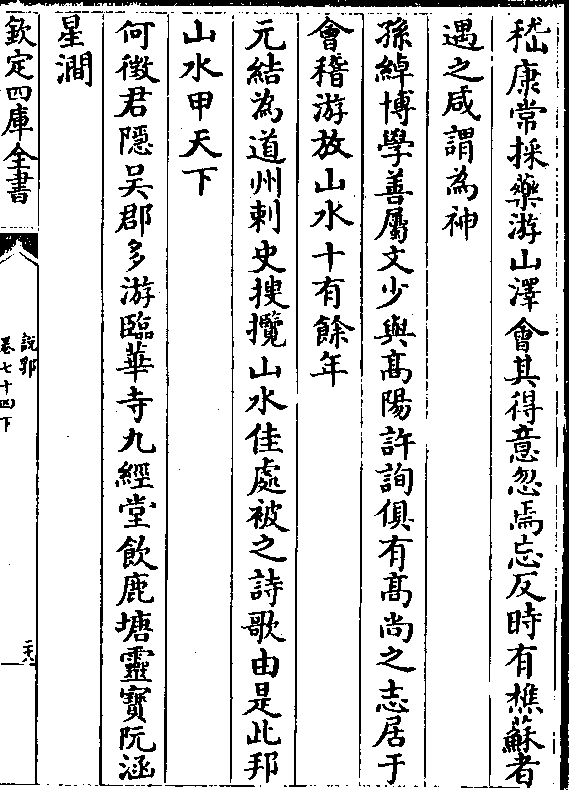 嵇康常採藥游山澤會其得意忽焉忘反時有樵蘇者
遇之咸謂為神
孫綽博學善屬文少與髙陽許詢俱有髙尚之志居于
會稽游放山水十有餘年
元結為道州刺史搜攬山水佳處被之詩歌由是此邦
山水甲天下
何徵君隠吴郡多游臨華寺九經堂飲鹿塘靈寳阮涵
星澗
欽定四庫全書
說郛
卷七十四下